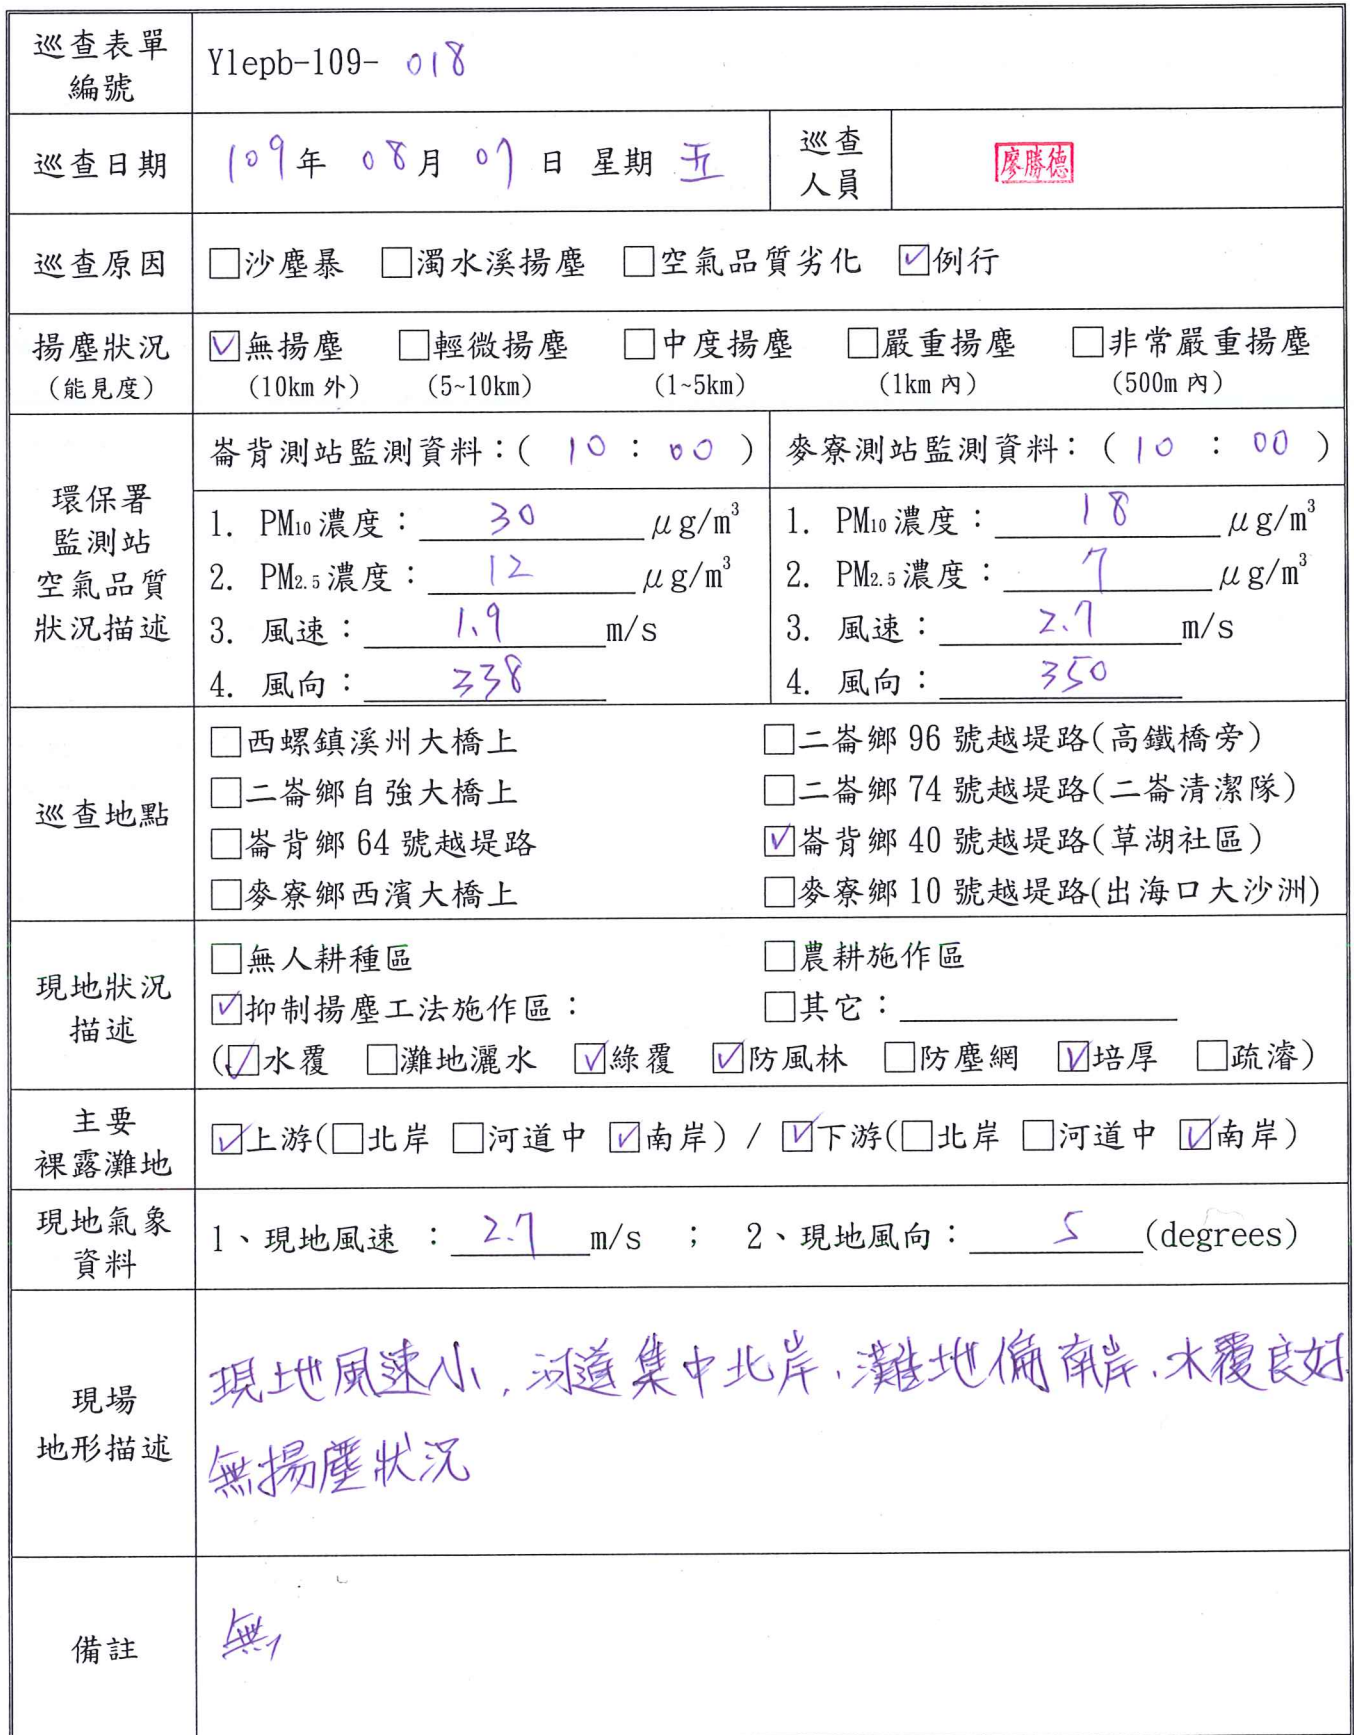 巡查表單
編號
Ylepb-109- 018
巡查日期
109年 08月 07日 星期 五
巡查
人員
廖勝德
巡查原因
□沙塵暴 □濁水溪揚塵 □空氣品質劣化 ☑例行
揚塵狀況
(能見度)
☑無揚塵 □輕微揚塵 □中度揚塵 □嚴重揚塵 □非常嚴重揚塵
(10km 外) (5~10km) (1~5km) (1km 內) (500m 內)
環保署
監測站
空氣品質
狀況描述
崙背測站監測資料：( 10 : 00 )
1. PM10濃度：30 μg/m³
2. PM2.5濃度：12 μg/m³
3. 風速：1.9 m/s
4. 風向：338
麥寮測站監測資料：( 10 : 00 )
1. PM10濃度：18 μg/m³
2. PM2.5濃度：7 μg/m³
3. 風速：2.7 m/s
4. 風向：350
巡查地點
□西螺鎮溪州大橋上 □二崙鄉 96 號越堤路(高鐵橋旁)
□二崙鄉自強大橋上 □二崙鄉 74 號越堤路(二崙清潔隊)
□崙背鄉 64 號越堤路 ☑崙背鄉 40 號越堤路(草湖社區)
□麥寮鄉西濱大橋上 □麥寮鄉 10 號越堤路(出海口大沙洲)
現地狀況
描述
□無人耕種區 □農耕施作區
☑抑制揚塵工法施作區： □其它：
(☑水覆 □灘地灑水 ☑綠覆 ☑防風林 □防塵網 ☑培厚 □疏濬)
主要
裸露灘地
☑上游(□北岸 □河道中 ☑南岸) / ☑下游(□北岸 □河道中 ☑南岸)
現地氣象
資料
1、現地風速 ：2.7 m/s ； 2、現地風向：5 (degrees)
現場
地形描述
現地風速小,河道集中北岸,灘地偏南岸,水覆良好
無揚塵狀況
備註
無